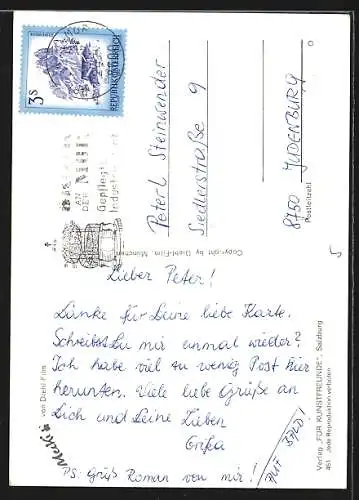 3 S
REPUBLIK ÖSTERREICH
AN
DER
Gepflegte
Peter L Steinwender
Siedlerstraße 9
8750 JUDENBURG
Postleitzahl
Copyright by Diehl-Film, München
Lieber Peter!
Danke für Deine liebe Karte.
Schreibst Du mir einmal wieder?
Ich habe viel zu wenig Post hier
herunten. Viele liebe Grüße an
Dich und Deine Lieben
PS: Grüß Roman von mir!
BALD!
Mecki
von Diehl-Film
Verlag „FÜR KUNSTFREUNDE", Salzburg
451 Jede Reproduktion verboten